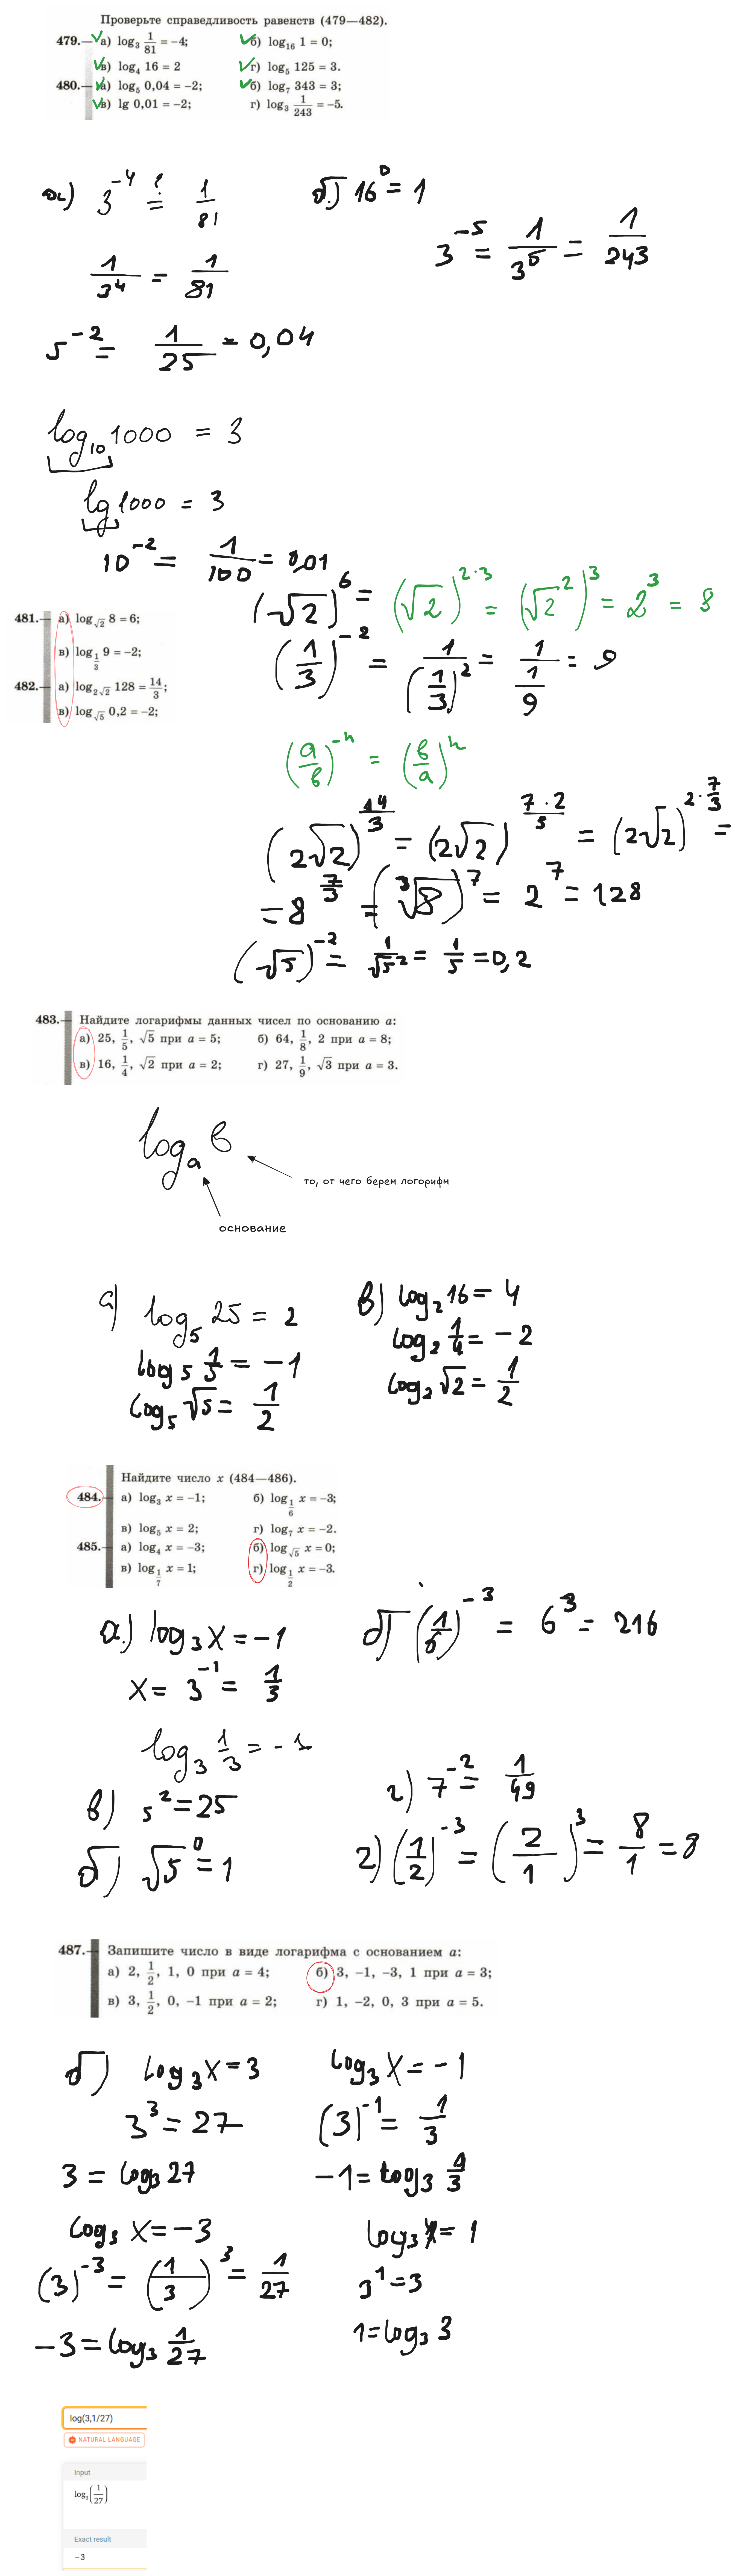 Проверьте справедливость равенств (479—482).
479.— а) log₃ 1/81 = −4; б) log₁₆ 1 = 0;
в) log₄ 16 = 2 г) log₅ 125 = 3.
480.— а) log₅ 0,04 = −2; б) log₇ 343 = 3;
в) lg 0,01 = −2; г) log₃ 1/243 = −5.
а) 3⁻⁴ ≟ 1/81 б) 16⁰ = 1
1/3⁴ = 1/81 3⁻⁵ = 1/3⁵ = 1/243
5⁻² = 1/25 = 0,04
log₁₀ 1000 = 3
lg 1000 = 3
10⁻² = 1/100 = 0,01
(√2)⁶ = (√2)^(2·3) = (√2²)³ = 2³ = 8
481.— а) log_√2 8 = 6;
в) log_(1/3) 9 = −2;
482.— а) log_(2√2) 128 = 14/3;
в) log_√5 0,2 = −2;
(1/3)⁻² = 1/(1/3)² = 1/(1/9) = 9
(a/в)⁻ⁿ = (в/a)ⁿ
(2√2)^(14/3) = (2√2)^(7·2/3) = (2√2)^(2·7/3) =
= 8^(7/3) = (³√8)⁷ = 2⁷ = 128
(√5)⁻² = 1/√5² = 1/5 = 0,2
483.— Найдите логарифмы данных чисел по основанию a:
а) 25, 1/5, √5 при a = 5; б) 64, 1/8, 2 при a = 8;
в) 16, 1/4, √2 при a = 2; г) 27, 1/9, √3 при a = 3.
logₐ в
то, от чего берем логорифм
основание
а) log₅ 25 = 2 в) log₂ 16 = 4
log₅ 1/5 = −1 log₂ 1/4 = −2
log₅ √5 = 1/2 log₂ √2 = 1/2
Найдите число x (484—486).
484.— а) log₃ x = −1; б) log_(1/6) x = −3;
в) log₅ x = 2; г) log₇ x = −2.
485.— а) log₄ x = −3; б) log_√5 x = 0;
в) log_(1/7) x = 1; г) log_(1/2) x = −3.
а.) log₃ x = −1 б) (1/6)⁻³ = 6³ = 216
x = 3⁻¹ = 1/3
log₃ 1/3 = −1
в) 5² = 25 г) 7⁻² = 1/49
б) √5⁰ = 1 г) (1/2)⁻³ = (2/1)³ = 8/1 = 8
487.— Запишите число в виде логарифма с основанием a:
а) 2, 1/2, 1, 0 при a = 4; б) 3, −1, −3, 1 при a = 3;
в) 3, 1/2, 0, −1 при a = 2; г) 1, −2, 0, 3 при a = 5.
б) log₃ x = 3 log₃ x = −1
3³ = 27 (3)⁻¹ = 1/3
3 = log₃ 27 −1 = log₃ 1/3
log₃ x = −3 log₃ x = 1
(3)⁻³ = (1/3)³ = 1/27 3¹ = 3
−3 = log₃ 1/27 1 = log₃ 3
log(3,1/27)
NATURAL LANGUAGE
Input
log₃(1/27)
Exact result
−3